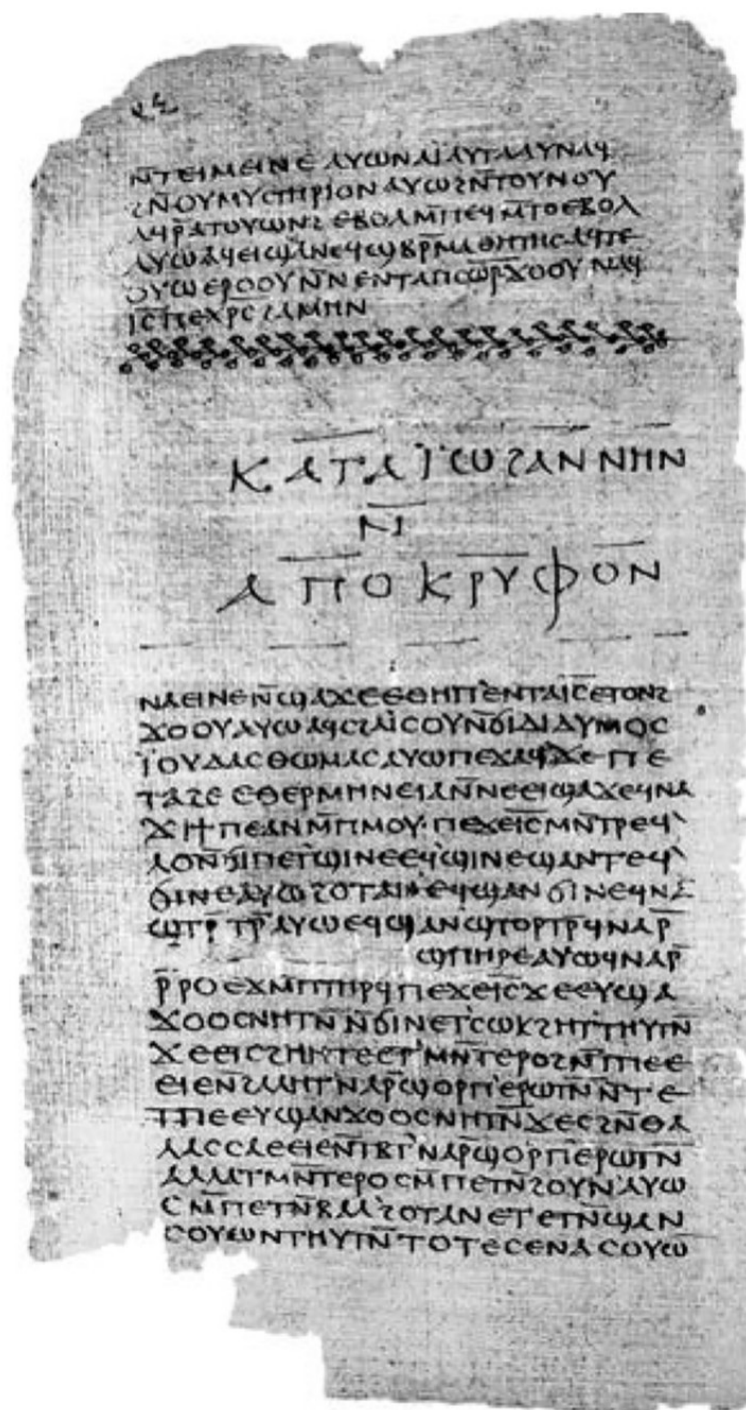 ⲗⲃ
ⲛ̄ⲧⲉⲓⲙⲉⲓⲛⲉ ⲁⲩⲱ ⲛⲁⲓ̈ ⲁⲩⲧⲁⲁⲩ ⲛⲁϥ
ϩⲛ̄ ⲟⲩⲙⲩⲥⲧⲏⲣⲓⲟⲛ ⲁⲩⲱ ϩⲛ̄ ⲧⲟⲩⲛⲟⲩ
ⲁϥⲣ̄ ⲁⲧⲟⲩⲱⲛϩ ⲉⲃⲟⲗ ⲙ̄ⲡⲉϥⲙ̄ⲧⲟ ⲉⲃⲟⲗ
ⲁⲩⲱ ⲁϥⲉⲓ ϣⲁ ⲛⲉϥϣⲃⲣ̄ⲙⲁⲑⲏⲧⲏⲥ ⲁϥⲡⲉ
ⲟⲩⲱ ⲉⲣⲟⲟⲩ ⲛ̄ⲛⲉⲛⲧⲁⲡⲥⲱⲣ̄ ϫⲟⲟⲩ ⲛⲁϥ
ⲓ̅ⲥ̅ ⲡⲉⲭ̅ⲣ̅ⲥ̅ ϩⲁⲙⲏⲛ
ⲕⲁⲧⲁ ⲓ̈ⲱϩⲁⲛⲛⲏⲛ
ⲛ̄
ⲁⲡⲟⲕⲣⲩⲫⲟⲛ
ⲛⲁⲉⲓ ⲛⲉ ⲛ̄ϣⲁϫⲉ ⲉⲑⲏⲡ ⲉⲛⲧⲁⲓ̅ⲥ̅ ⲉⲧⲟⲛϩ
ϫⲟⲟⲩ ⲁⲩⲱ ⲁϥⲥϩⲁⲓⲥⲟⲩ ⲛ̄ϭⲓ ⲇⲓⲇⲩⲙⲟⲥ
ⲓ̈ⲟⲩⲇⲁⲥ ⲑⲱⲙⲁⲥ ⲁⲩⲱ ⲡⲉϫⲁϥ ϫⲉ ⲡⲉ
ⲧⲁϩⲉ ⲉⲑⲉⲣⲙⲏⲛⲉⲓⲁ ⲛ̄ⲛⲉⲉⲓϣⲁϫⲉ ϥⲛⲁ
ϫⲓ ϯⲡⲉ ⲁⲛ ⲙ̄ⲡⲙⲟⲩ· ⲡⲉϫⲉ ⲓ̅ⲥ̅ ⲙⲛ̄ⲧⲣⲉϥ
ⲗⲟ ⲛ̄ϭⲓ ⲡⲉⲧϣⲓⲛⲉ ⲉϥϣⲓⲛⲉ ϣⲁⲛⲧⲉϥ
ϭⲓⲛⲉ ⲁⲩⲱ ϩⲟⲧⲁⲛ ⲉϥϣⲁⲛϭⲓⲛⲉ ϥⲛⲁ
ϣⲧⲣ̄ⲧⲣ̄ ⲁⲩⲱ ⲉϥϣⲁⲛϣⲧⲟⲣⲧⲣ̄ ϥⲛⲁⲣ̄
ϣⲡⲏⲣⲉ ⲁⲩⲱ ϥⲛⲁⲣ̄
ⲣ̄ⲣⲟ ⲉϫⲙ̄ ⲡⲧⲏⲣϥ ⲡⲉϫⲉ ⲓ̅ⲥ̅ ϫⲉ ⲉⲩϣⲁ
ϫⲟⲟⲥ ⲛⲏⲧⲛ̄ ⲛ̄ϭⲓ ⲛⲉⲧⲥⲱⲕ ϩⲏⲧ ⲑⲏⲩⲧⲛ̄
ϫⲉ ⲉⲓⲥϩⲏⲏⲧⲉ ⲉⲧⲙⲛ̄ⲧⲉⲣⲟ ϩⲛ̄ ⲧⲡⲉ ⲉ
ⲉⲓⲉ ⲛ̄ϩⲁⲗⲏⲧ ⲛⲁⲣ̄ ϣⲟⲣⲡ ⲉⲣⲱⲧⲛ̄ ⲛ̄ⲧⲉ
ⲧⲡⲉ ⲉⲩϣⲁⲛϫⲟⲟⲥ ⲛⲏⲧⲛ̄ ϫⲉ ⲥϩⲛ̄ ⲑⲁ
ⲗⲁⲥⲥⲁ ⲉⲉⲓⲉ ⲛ̄ⲧⲃⲧ ⲛⲁⲣ̄ ϣⲟⲣⲡ ⲉⲣⲱⲧⲛ̄
ⲁⲗⲗⲁ ⲧⲙⲛ̄ⲧⲉⲣⲟ ⲥⲙ̄ⲡⲉⲧⲛ̄ϩⲟⲩⲛ ⲁⲩⲱ
ⲥⲙ̄ⲡⲉⲧⲛ̄ⲃⲁⲗ ϩⲟⲧⲁⲛ ⲉⲧⲉⲧⲛ̄ϣⲁⲛ
ⲥⲟⲩⲱⲛ ⲧⲏⲩⲧⲛ̄ ⲧⲟⲧⲉ ⲥⲉⲛⲁⲥⲟⲩⲱ